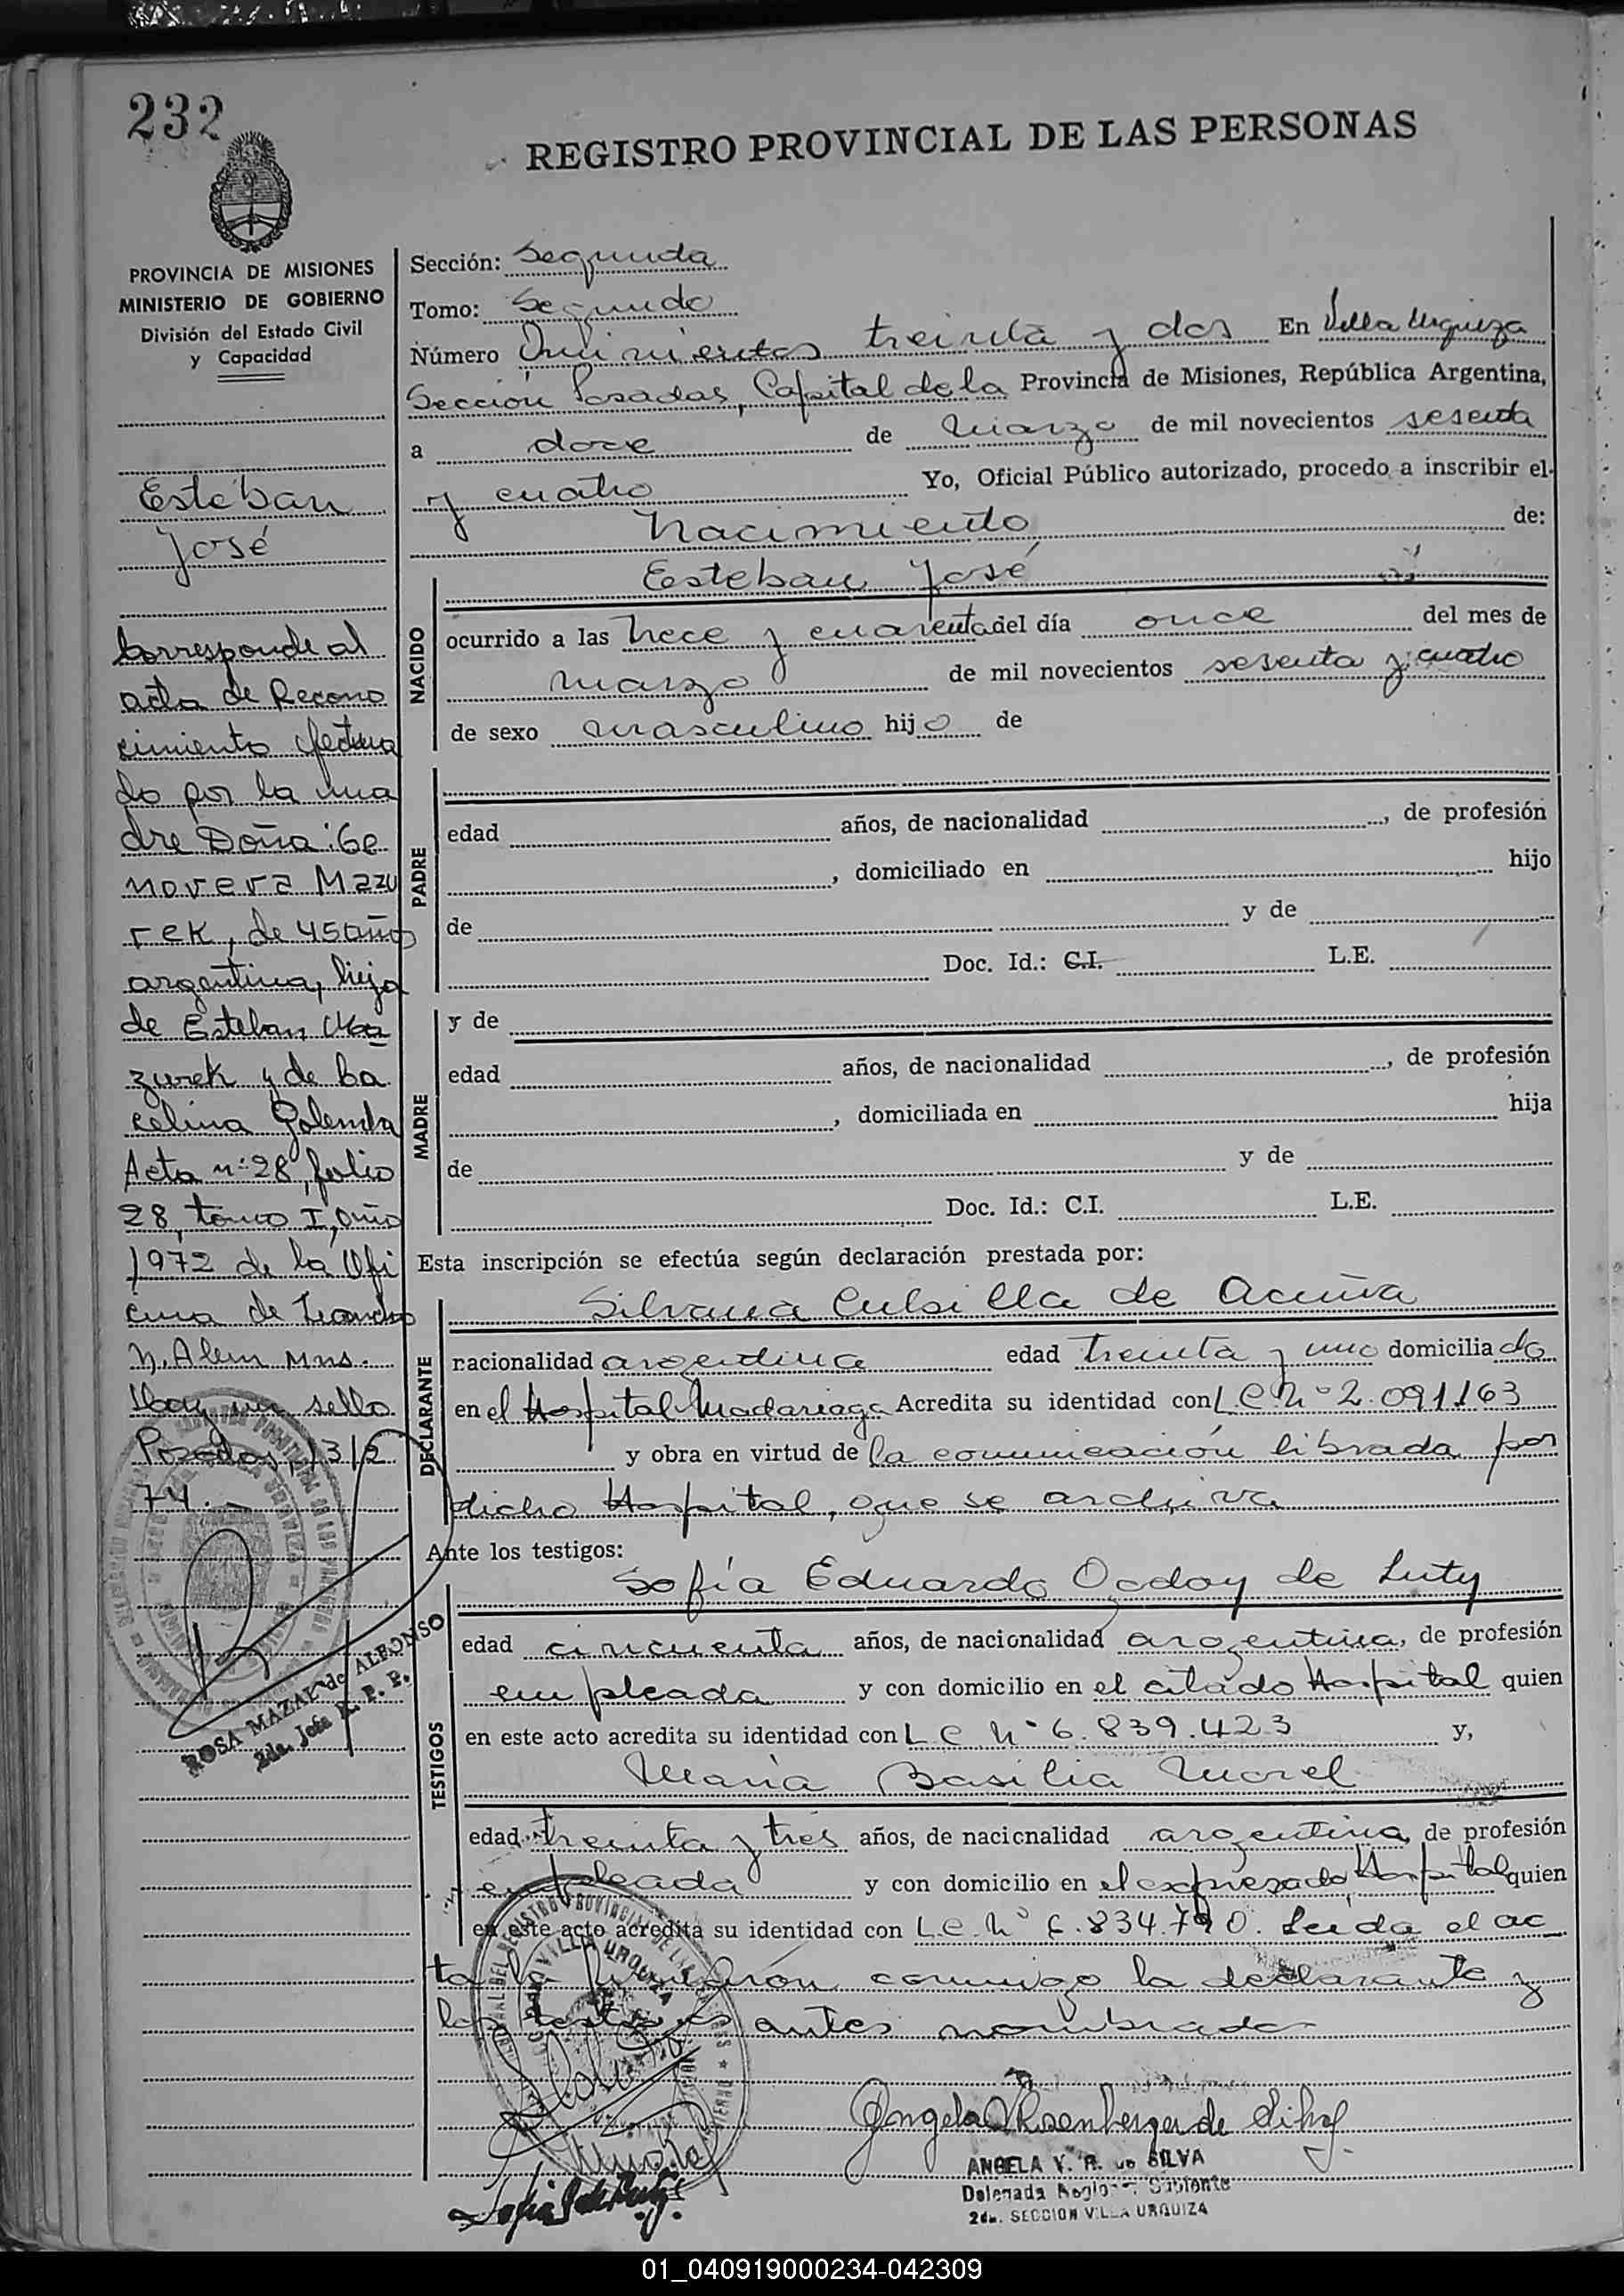 232
REGISTRO PROVINCIAL DE LAS PERSONAS
PROVINCIA DE MISIONES
MINISTERIO DE GOBIERNO
División del Estado Civil
y Capacidad
Esteban
José
Corresponde al
acta de Recono
cimiento efectua
do por la ma
dre Doña: Ge
novera Mazu
rek, de 45 años
argentina, hija
de Esteban Ma
zurek y de Ca
celina Golemba
Acta nº 28, folio
28, tomo I, año
1972 de la Ofi
cina de Leandro
N. Alem Mns.
Hay un sello
Posadas, 13/2
74.-
ROSA MAZAL de ALFONSO
2da. Jefe R. P. P.
Sección: Segunda
Tomo: Segundo
Número Quinientos treinta y dos En Villa Urquiza
Sección Posadas, Capital de la Provincia de Misiones, República Argentina,
a doce de Marzo de mil novecientos sesenta
y cuatro Yo, Oficial Público autorizado, procedo a inscribir el
Nacimiento de:
Esteban José
NACIDO
ocurrido a las trece y cuarenta del día once del mes de
marzo de mil novecientos sesenta y cuatro
de sexo masculino hijo de
PADRE
edad años, de nacionalidad , de profesión
, domiciliado en hijo
de y de
Doc. Id.: C.I. L.E.
MADRE
y de
edad años, de nacionalidad , de profesión
, domiciliada en hija
de y de
Doc. Id.: C.I. L.E.
Esta inscripción se efectúa según declaración prestada por:
DECLARANTE
Silvana de Acuña
nacionalidad argentina edad treinta y uno domiciliado
en el Hospital Madariaga Acredita su identidad con L C Nº 2.091.163
y obra en virtud de la comunicación librada por
dicho Hospital, que se archiva
Ante los testigos:
TESTIGOS
Sofía Eduardo Ogdoy de Luty
edad cincuenta años, de nacionalidad argentina, de profesión
empleada y con domicilio en el citado Hospital quien
en este acto acredita su identidad con L C Nº 6.839.423 y,
María Basilia Morel
edad treinta y tres años, de nacionalidad argentina, de profesión
empleada y con domicilio en el expresado Hospital quien
en este acto acredita su identidad con L.C. Nº 6.834.790. Leida el ac
ta la firmaron conmigo la declarante y
los testigos antes nombrados
VILLA URQUIZA
Angela V Rosenberger de Silva
ANGELA V. R. de SILVA
Delegada Region. Subiente
2da. SECCION VILLA URQUIZA
01_040919000234-042309